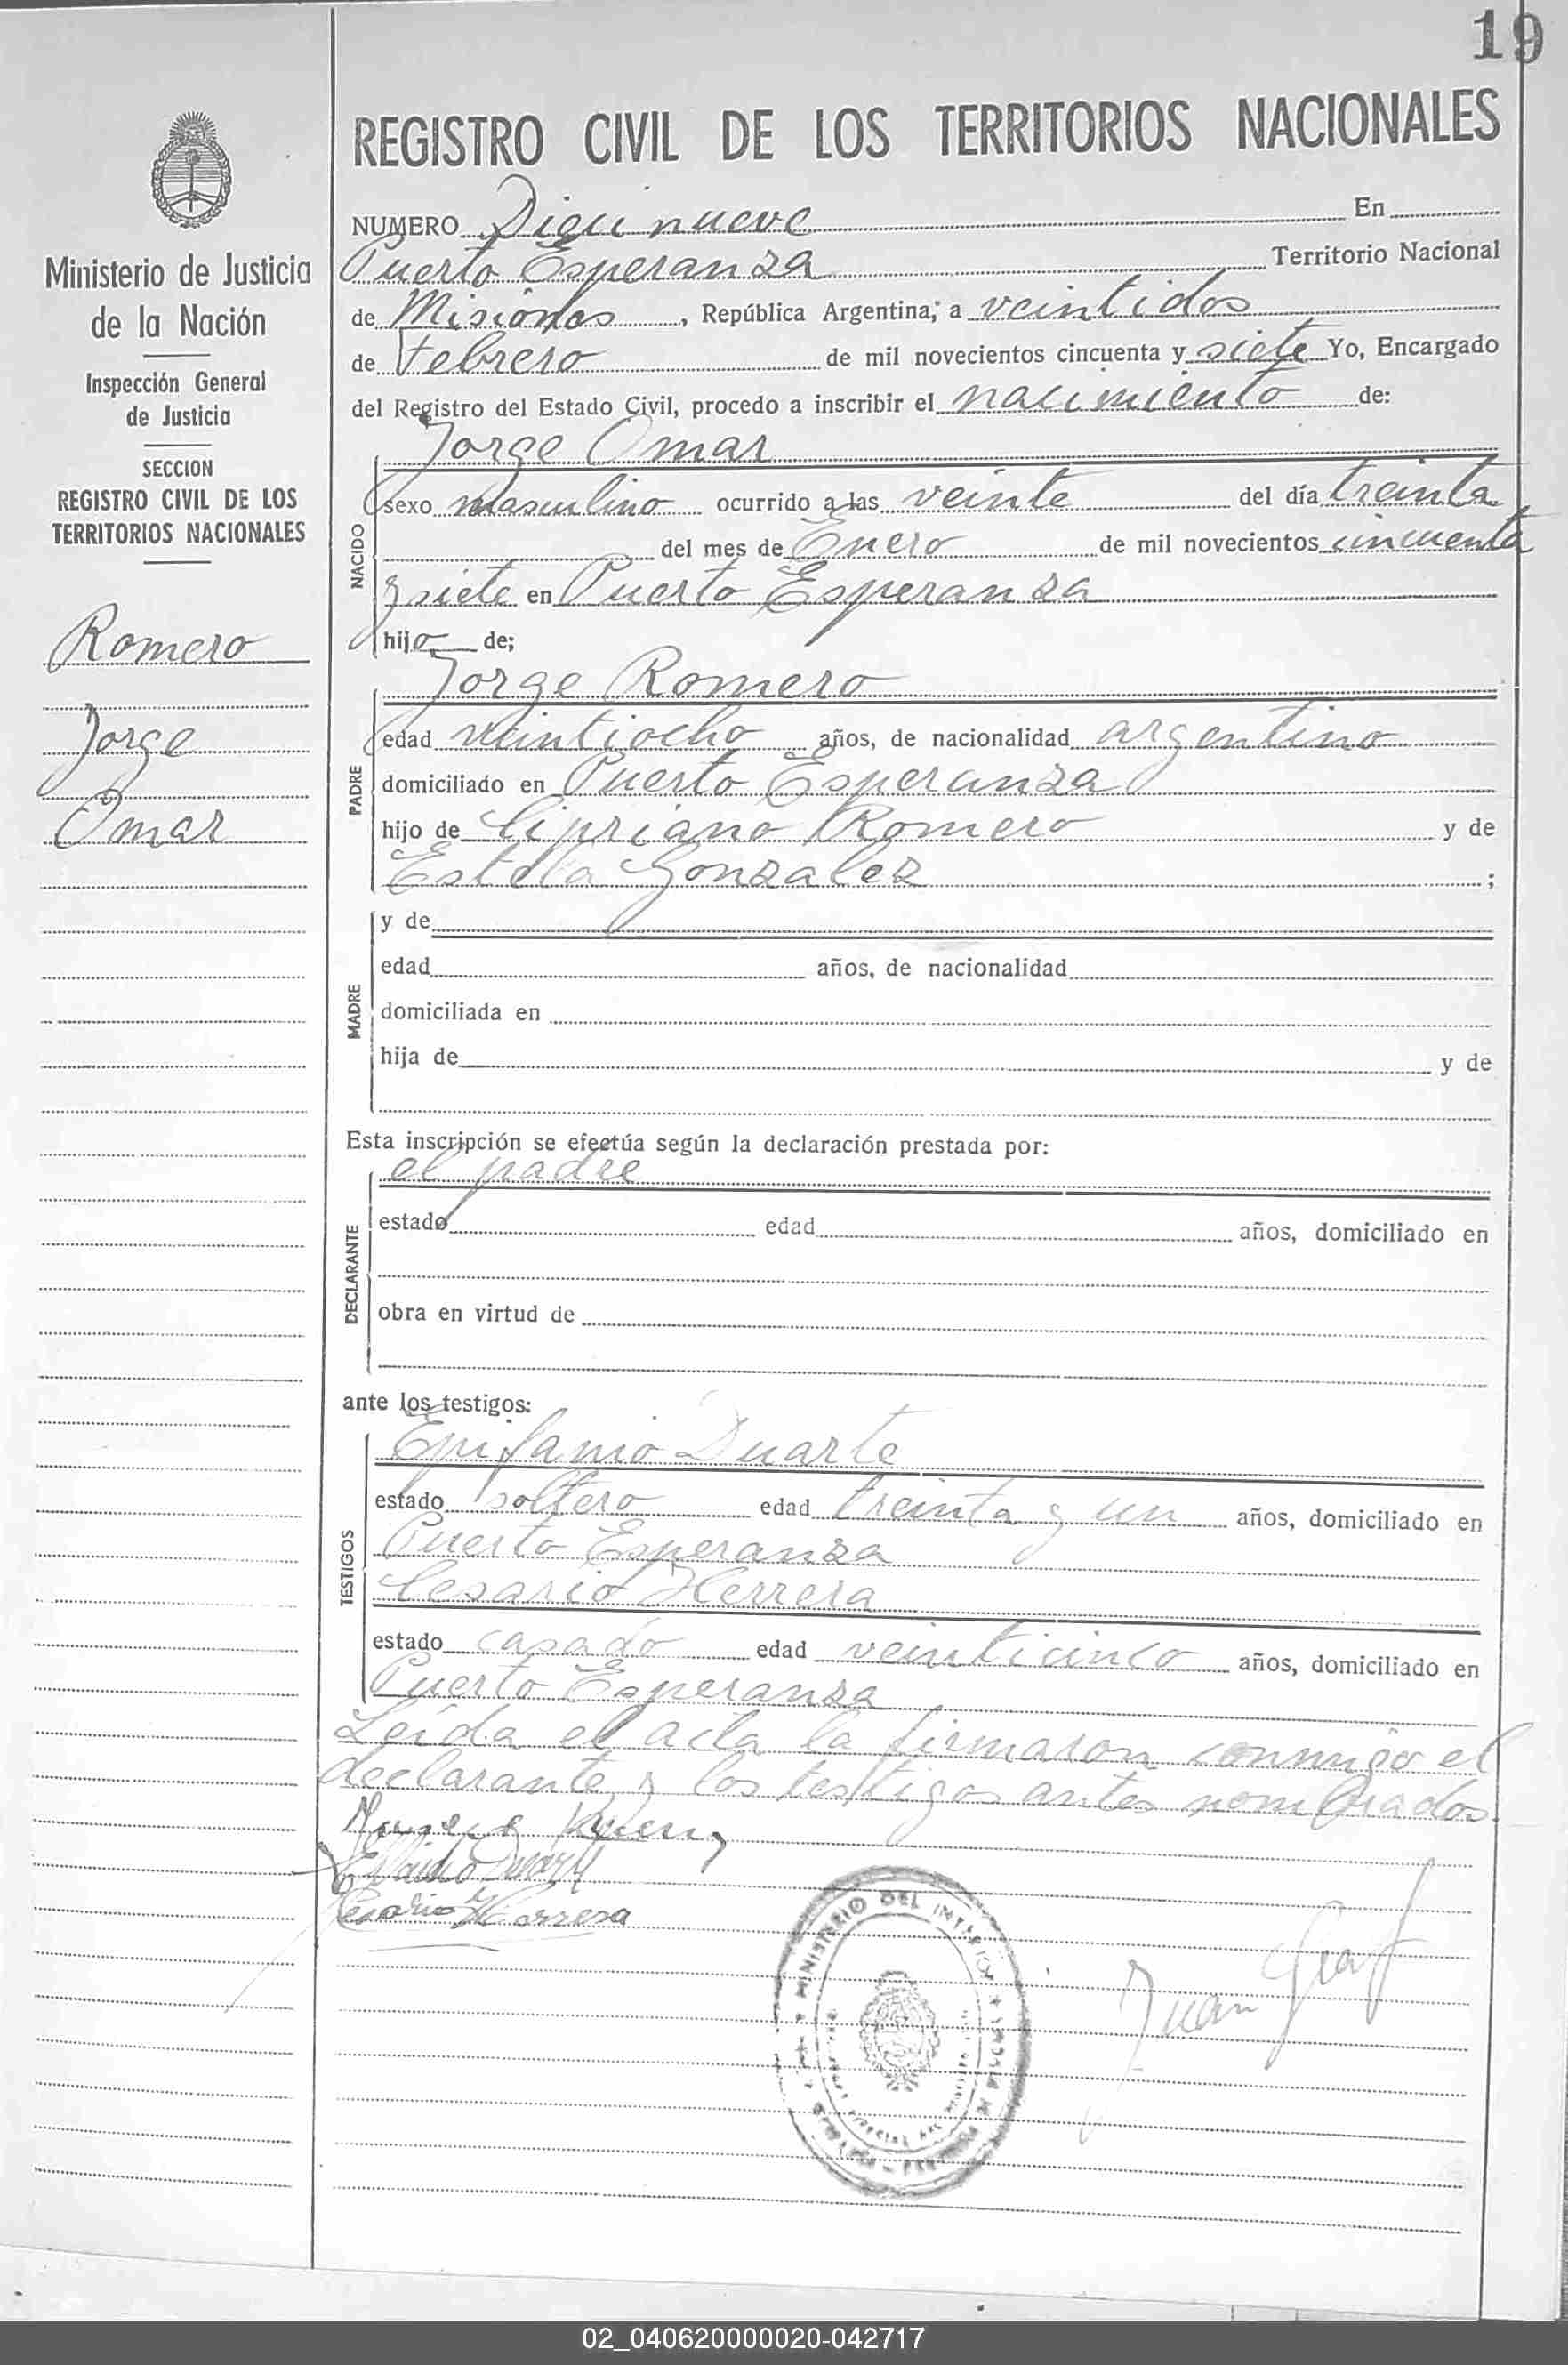 19
REGISTRO CIVIL DE LOS TERRITORIOS NACIONALES
Ministerio de Justicia
de la Nación
Inspección General
de Justicia
SECCION
REGISTRO CIVIL DE LOS
TERRITORIOS NACIONALES
Romero
Jorge
Omar
NUMERO Diecinueve En
Puerto Esperanza Territorio Nacional
de Misiones, República Argentina; a veintidos
de Febrero de mil novecientos cincuenta y siete Yo, Encargado
del Registro del Estado Civil, procedo a inscribir el nacimiento de:
NACIDO
Jorge Omar
sexo masculino ocurrido a las veinte del día treinta
del mes de Enero de mil novecientos cincuenta
y siete en Puerto Esperanza
hijo de;
PADRE
Jorge Romero
edad veintiocho años, de nacionalidad argentino
domiciliado en Puerto Esperanza
hijo de Cipriano Romero y de
Estela Gonzalez ;
MADRE
y de
edad años, de nacionalidad
domiciliada en
hija de y de
Esta inscripción se efectúa según la declaración prestada por:
DECLARANTE
el padre
estado edad años, domiciliado en
obra en virtud de
ante los testigos:
TESTIGOS
Epifanio Duarte
estado soltero edad treinta y un años, domiciliado en
Puerto Esperanza
Cesario Herrera
estado casado edad veinticinco años, domiciliado en
Puerto Esperanza
Leída el acta la firmaron conmigo el
declarante y los testigos antes nombrados.
Cesario Herrera
MINISTERIO DEL INTERIOR
Juan
02_040620000020-042717